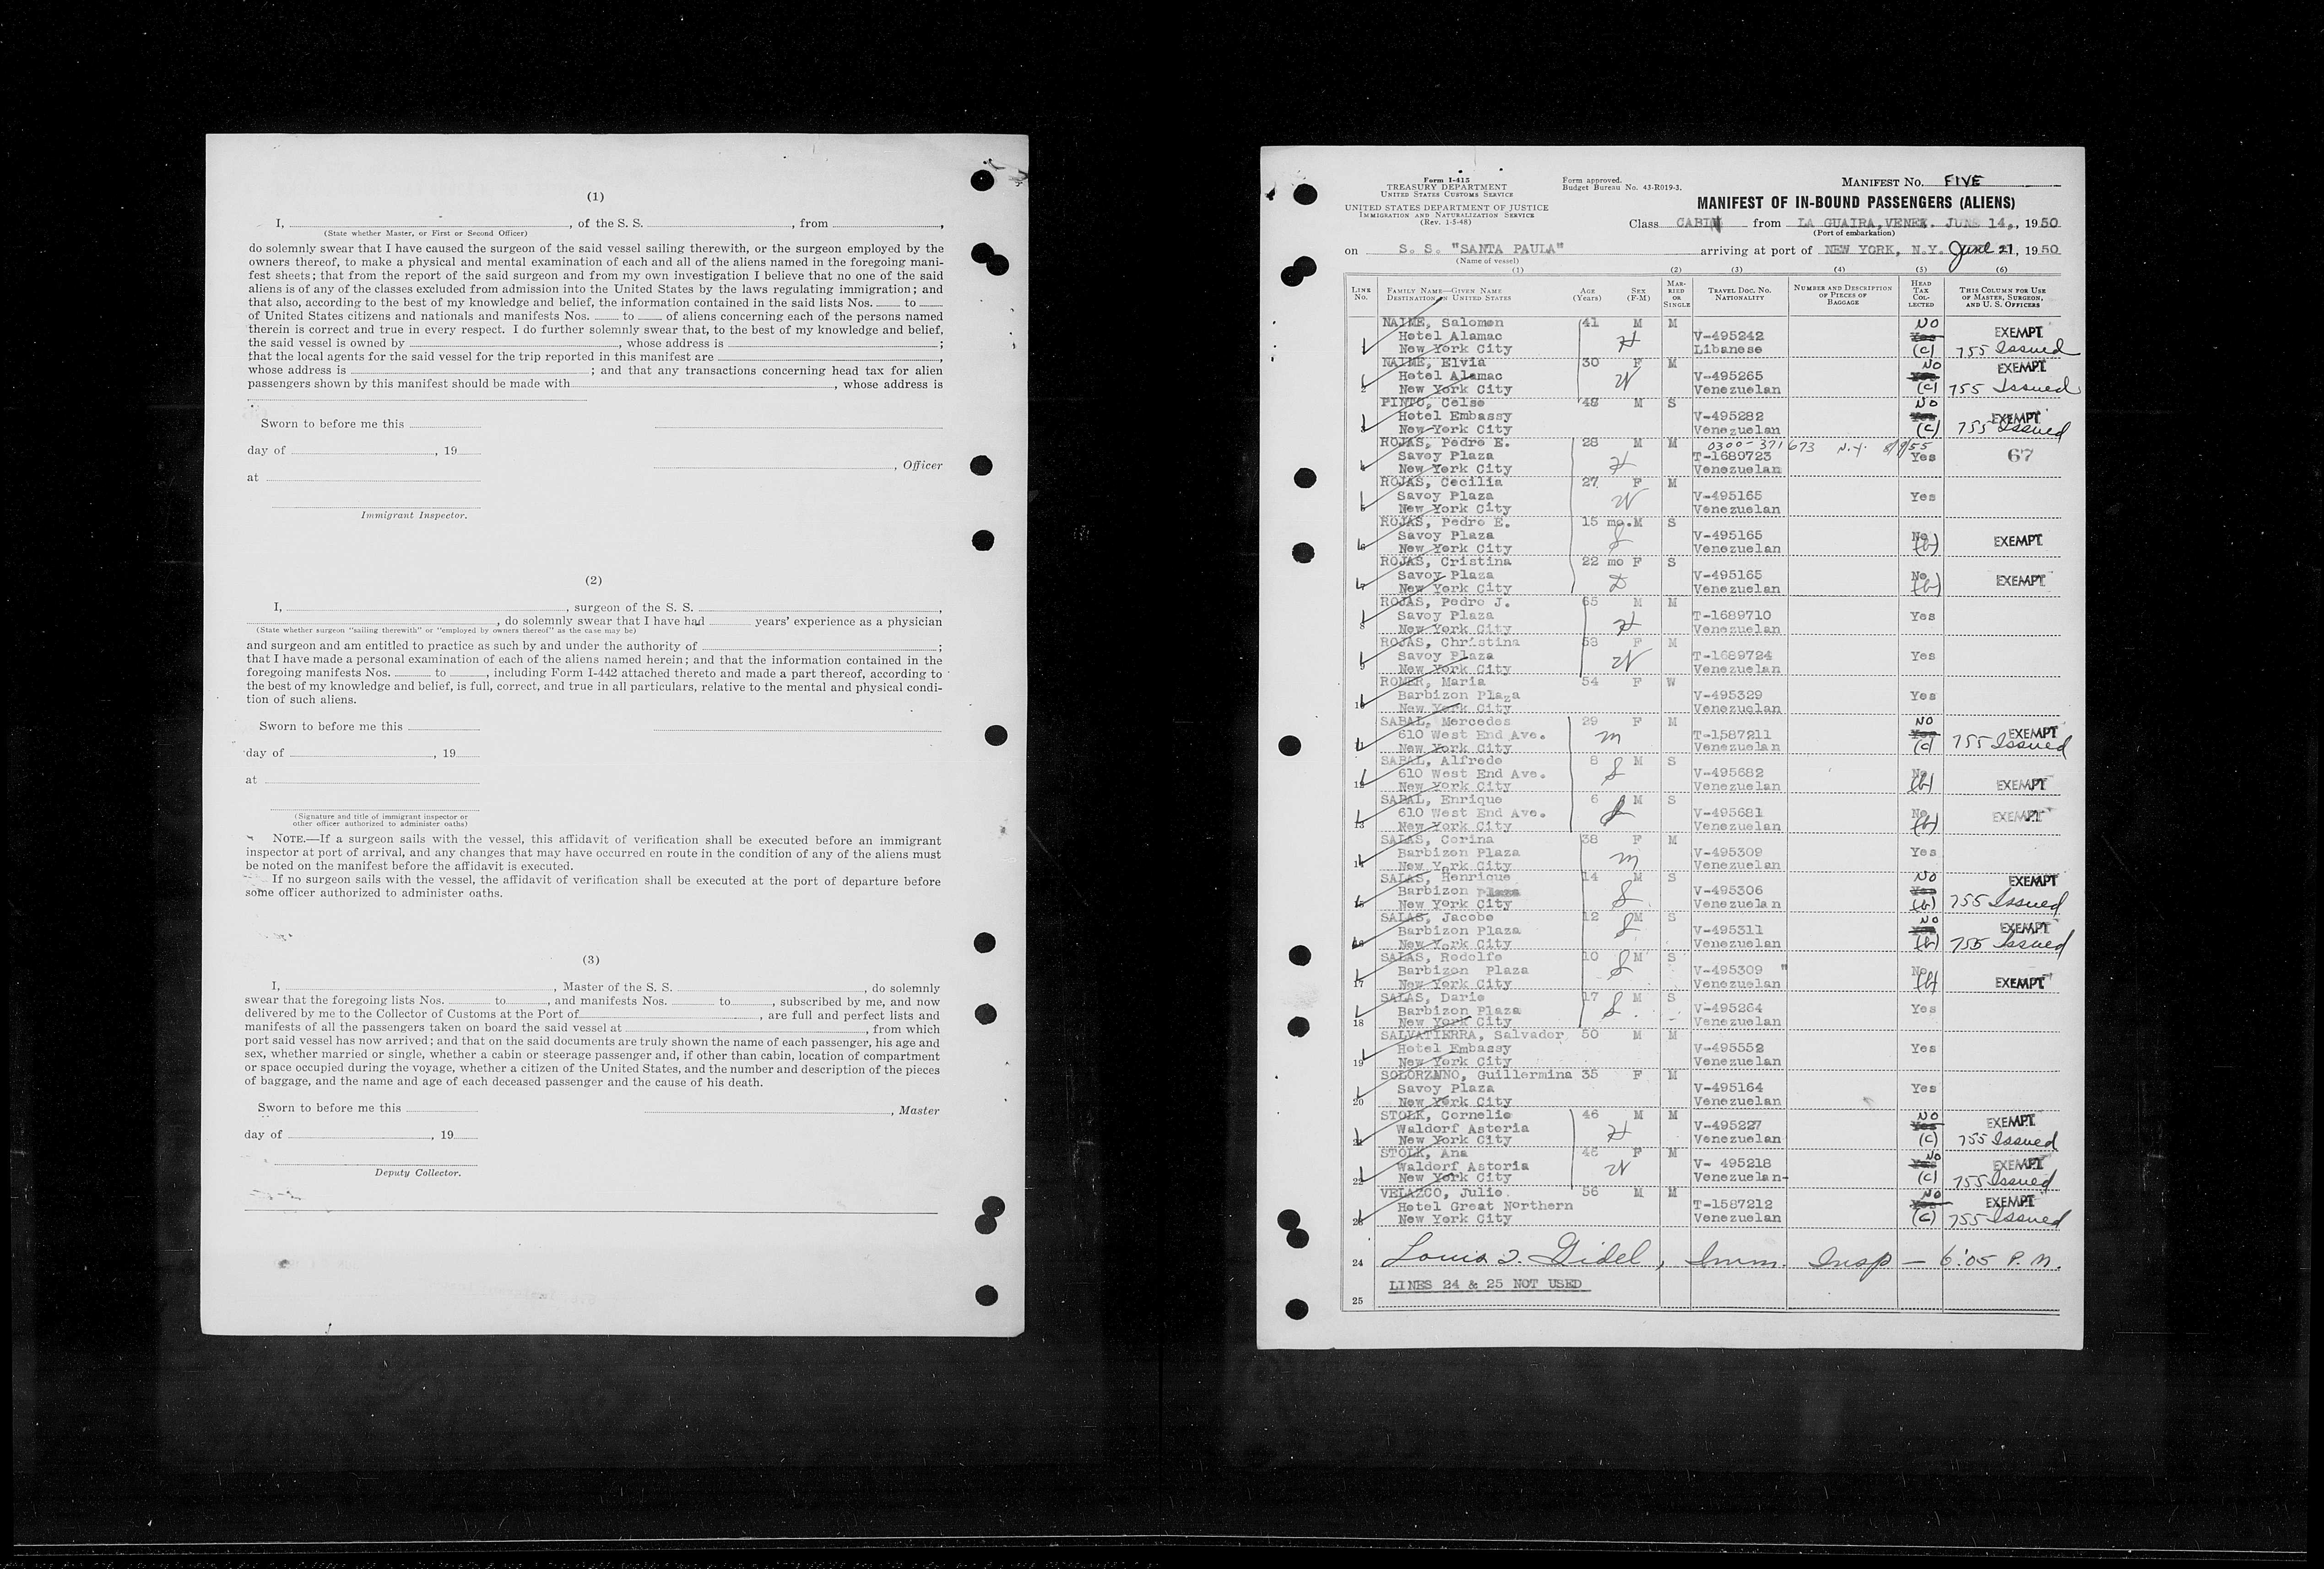 (1)
I, , of the S. S. , from ,
(State whether Master, or First or Second Officer)
do solemnly swear that I have caused the surgeon of the said vessel sailing therewith, or the surgeon employed by the
owners thereof, to make a physical and mental examination of each and all of the aliens named in the foregoing mani-
fest sheets; that from the report of the said surgeon and from my own investigation I believe that no one of the said
aliens is of any of the classes excluded from admission into the United States by the laws regulating immigration; and
that also, according to the best of my knowledge and belief, the information contained in the said lists Nos. to
of United States citizens and nationals and manifests Nos. to of aliens concerning each of the persons named
therein is correct and true in every respect. I do further solemnly swear that, to the best of my knowledge and belief,
the said vessel is owned by , whose address is ;
that the local agents for the said vessel for the trip reported in this manifest are ,
whose address is ; and that any transactions concerning head tax for alien
passengers shown by this manifest should be made with , whose address is
Sworn to before me this
day of , 19
, Officer
at
Immigrant Inspector.
(2)
I, , surgeon of the S. S. ,
, do solemnly swear that I have had years' experience as a physician
(State whether surgeon "sailing therewith" or "employed by owners thereof" as the case may be)
and surgeon and am entitled to practice as such by and under the authority of ;
that I have made a personal examination of each of the aliens named herein; and that the information contained in the
foregoing manifests Nos. to , including Form I-442 attached thereto and made a part thereof, according to
the best of my knowledge and belief, is full, correct, and true in all particulars, relative to the mental and physical condi-
tion of such aliens.
Sworn to before me this
day of , 19
at
(Signature and title of immigrant inspector or
other officer authorized to administer oaths)
NOTE.—If a surgeon sails with the vessel, this affidavit of verification shall be executed before an immigrant
inspector at port of arrival, and any changes that may have occurred en route in the condition of any of the aliens must
be noted on the manifest before the affidavit is executed.
If no surgeon sails with the vessel, the affidavit of verification shall be executed at the port of departure before
some officer authorized to administer oaths.
(3)
I, , Master of the S. S. , do solemnly
swear that the foregoing lists Nos. to , and manifests Nos. to , subscribed by me, and now
delivered by me to the Collector of Customs at the Port of , are full and perfect lists and
manifests of all the passengers taken on board the said vessel at , from which
port said vessel has now arrived; and that on the said documents are truly shown the name of each passenger, his age and
sex, whether married or single, whether a cabin or steerage passenger and, if other than cabin, location of compartment
or space occupied during the voyage, whether a citizen of the United States, and the number and description of the pieces
of baggage, and the name and age of each deceased passenger and the cause of his death.
Sworn to before me this
, Master
day of , 19
Deputy Collector.
Form I-415
TREASURY DEPARTMENT
UNITED STATES CUSTOMS SERVICE
UNITED STATES DEPARTMENT OF JUSTICE
IMMIGRATION AND NATURALIZATION SERVICE
(Rev. 1-5-48)
Form approved.
Budget Bureau No. 43-R019-3.
MANIFEST No. FIVE
MANIFEST OF IN-BOUND PASSENGERS (ALIENS)
Class CABIN from LA GUAIRA, VENEZ. JUNE 14, 1950
(Port of embarkation)
on S. S. "SANTA PAULA" arriving at port of NEW YORK, N.Y. June 21, 1950
(Name of vessel)
(1) (2) (3) (4) (5) (6)
LINE No. FAMILY NAME—GIVEN NAME DESTINATION IN UNITED STATES AGE (Years) SEX (F-M) MARRIED OR SINGLE TRAVEL DOC. NO. NATIONALITY NUMBER AND DESCRIPTION OF PIECES OF BAGGAGE HEAD TAX COLLECTED THIS COLUMN FOR USE OF MASTER, SURGEON, AND U. S. OFFICERS
NAIME, Salomon 41 M M NO
Hotel Alamac H V-495242 Yes EXEMPT
1 New York City Libanese (c) 755 Issued
NAIME, Elvia 30 F M NO EXEMPT
Hotel Alamac W V-495265 Yes
2 New York City Venezuelan (c) 755 Issued
PINTO, Celso 48 M S NO
Hotel Embassy V-495282 Yes EXEMPT
3 New York City Venezuelan (c) 755 Issued
ROJAS, Pedro E. 28 M M 0300-371673 N.Y. 8/9/55
Savoy Plaza H T-1689723 Yes 67
4 New York City Venezuelan
ROJAS, Cecilia 27 F M
Savoy Plaza W V-495165 Yes
5 New York City Venezuelan
ROJAS, Pedro E. 15 mo. M S
Savoy Plaza S V-495165 No
6 New York City Venezuelan (b) EXEMPT
ROJAS, Cristina 22 mo F S
Savoy Plaza D V-495165 No EXEMPT
7 New York City Venezuelan (b)
ROJAS, Pedro J. 65 M M
Savoy Plaza H T-1689710 Yes
8 New York City Venezuelan
ROJAS, Christina 53 F M
Savoy Plaza W T-1689724 Yes
9 New York City Venezuelan
ROMER, Maria 54 F W
Barbizon Plaza V-495329 Yes
10 New York City Venezuelan
SABAL, Mercedes 29 F M NO
610 West End Ave. m T-1587211 Yes EXEMPT
11 New York City Venezuelan (c) 755 Issued
SABAL, Alfredo 8 M S
610 West End Ave. S V-495682 No
12 New York City Venezuelan (b) EXEMPT
SABAL, Enrique 6 M S
610 West End Ave. S V-495681 No EXEMPT
13 New York City Venezuelan (b)
SALAS, Corina 38 F M
Barbizon Plaza m V-495309 Yes
14 New York City Venezuelan
SALAS, Henrique 14 M S NO EXEMPT
Barbizon Plaza S V-495306 Yes
15 New York City Venezuelan (b) 755 Issued
SALAS, Jacobo 12 M S NO
Barbizon Plaza S V-495311 Yes EXEMPT
16 New York City Venezuelan (b) 755 Issued
SALAS, Rodolfo 10 M S
Barbizon Plaza S V-495309 " No
17 New York City Venezuelan (b) EXEMPT
SALAS, Dario 17 M S
Barbizon Plaza S. V-495264 Yes
18 New York City Venezuelan
SALVATIERRA, Salvador 50 M M
Hotel Embassy V-495552 Yes
19 New York City Venezuelan
SOLORZANO, Guillermina 35 F M
Savoy Plaza V-495164 Yes
20 New York City Venezuelan
STOLK, Cornelio 46 M M NO
Waldorf Astoria H V-495227 Yes EXEMPT
21 New York City Venezuelan (c) 755 Issued
STOLK, Ana 46 F M NO
Waldorf Astoria W V- 495218 Yes EXEMPT
22 New York City Venezuelan- (c) 755 Issued
VELAZCO, Julio. 56 M M NO
Hotel Great Northern T-1587212 Yes EXEMPT
23 New York City Venezuelan (c) 755 Issued
24 Louis J. Gidel, Imm. Insp — 6:05 P.M.
LINES 24 & 25 NOT USED
25